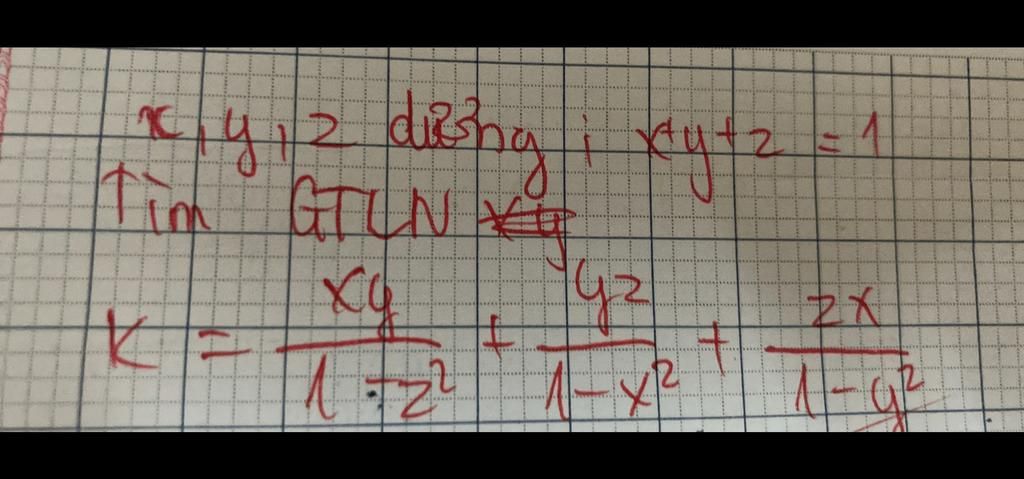 x, y, z dương ; x+y+z = 1
Tìm GTLN
K = \frac{xy}{1-z^2} + \frac{yz}{1-x^2} + \frac{zx}{1-y^2}